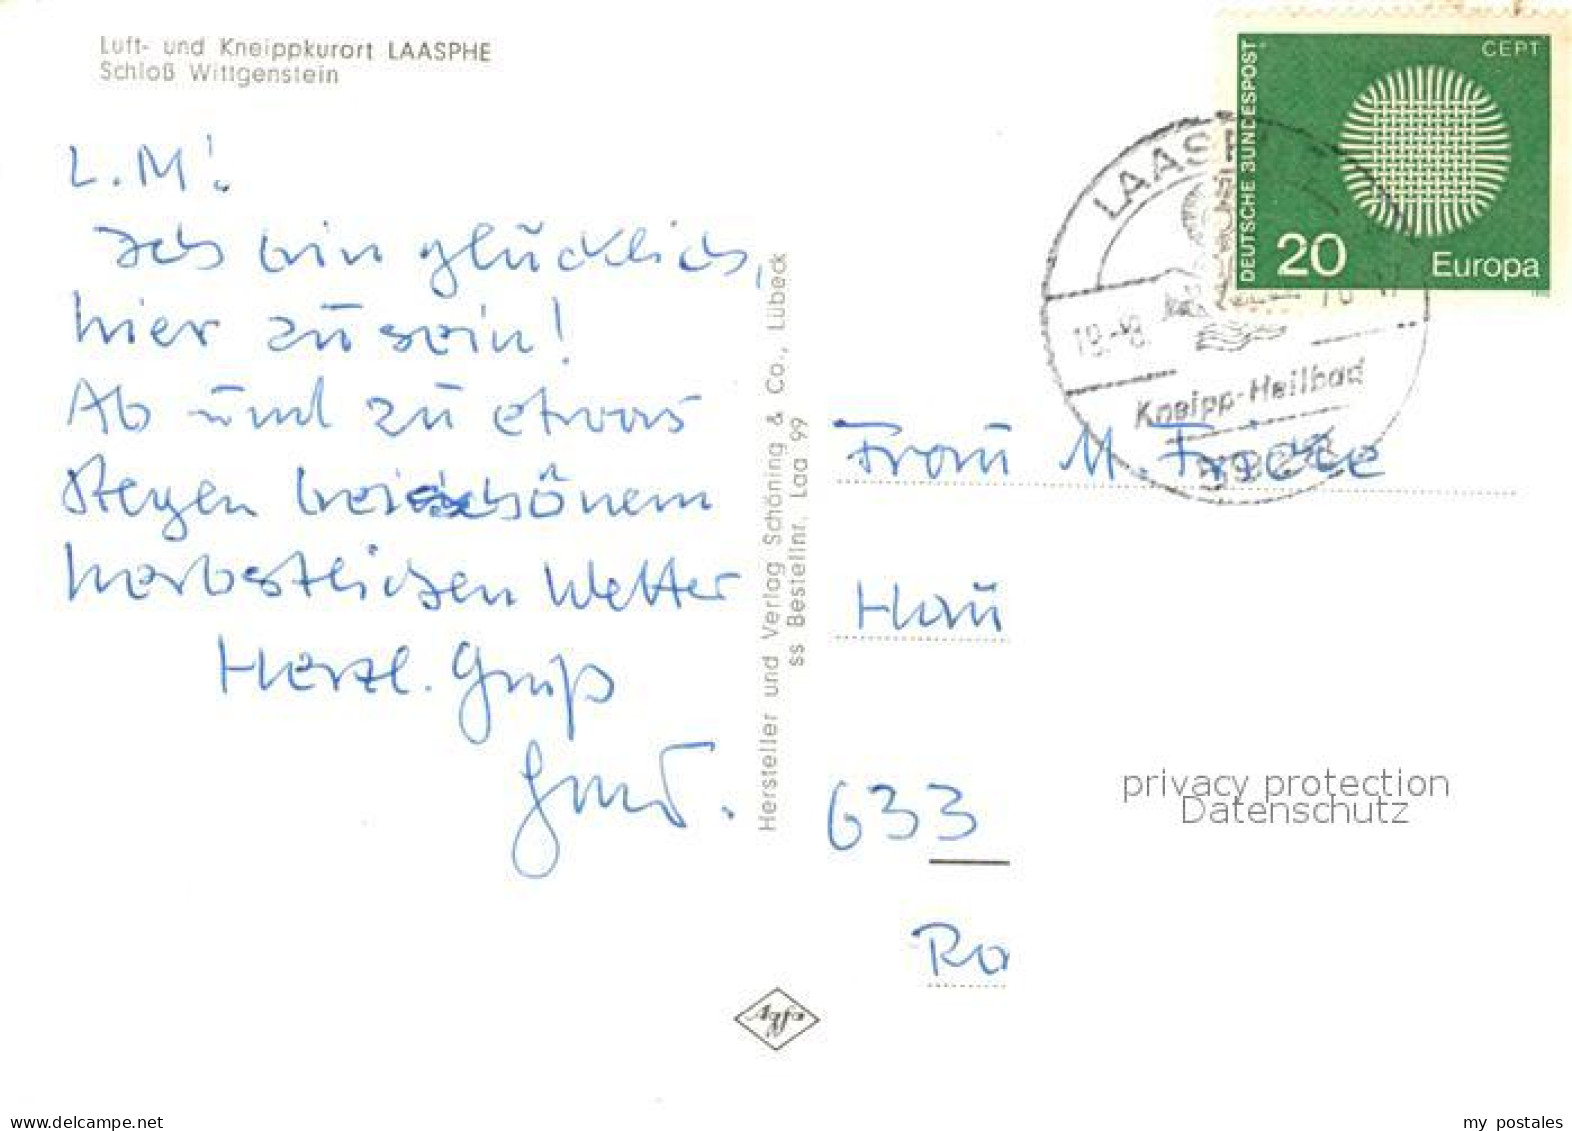 Luft- und Kneippkurort LAASPHE
Schloß Wittgenstein
L.M!
Ich bin glücklich,
hier zu sein!
Ab und zu etwas
Regen bei schönem
herbstlichen Wetter
Herzl. Gruß
Hersteller und Verlag Schöning & Co., Lübeck
ss Bestellnr. Laa 99
CEPT
DEUTSCHE BUNDESPOST
20
Europa
LAAS
Kneipp-Heilbad
Frau M. Fricke
Hau
633
Ro
privacy protection
Datenschutz
Agfa
www.delcampe.net
my_postales